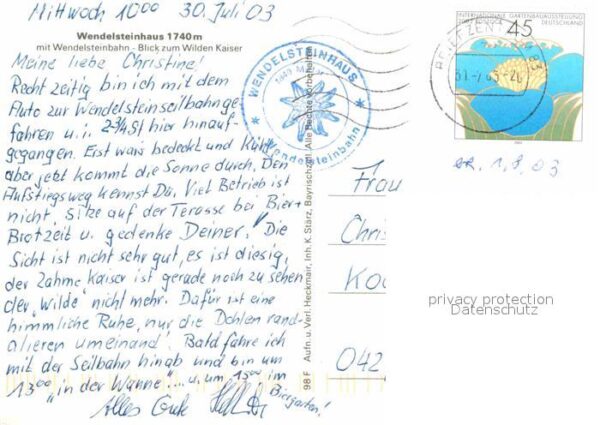 Mittwoch 10⁰⁰ 30. Juli 03
Wendelsteinhaus 1740 m
mit Wendelsteinbahn - Blick zum Wilden Kaiser
Meine liebe Christine!
Recht zeitig bin ich mit dem
Auto zur Wendelsteinseilbahn ge-
fahren u. i. 2 3/4 St hier hinauf-
gegangen. Erst war's bedeckt und kühl
aber jetzt kommt die Sonne durch. Den
Aufstiegsweg kennst Du. Viel Betrieb ist
nicht. Sitze auf der Terasse bei Bier+
Brotzeit u. gedenke Deiner! Die
Sicht ist nicht sehr gut, es ist diesig,
der Zahme Kaiser ist gerade noch zu sehen
der "wilde" nicht mehr. Dafür ist eine
himmliche Ruhe, nur die Dohlen rand-
alieren umeinand! Bald fahre ich
mit der Seilbahn hinab und bin um
13⁰⁰ "in der Wanne"... u. um 15⁰⁰ im
Biergarten!
Alles Gute
WENDELSTEINHAUS
Wendelsteinbahn
98 F Aufn. u. Verl. Heckmair, Inh. K. Stärz, Bayrischzell. Alle Rechte vorbehalten
INTERNATIONALE GARTENBAUAUSSTELLUNG
45 DEUTSCHLAND
BRIEFZENTRUM
1.8.03
Frau
Chris
042
privacy protection
Datenschutz